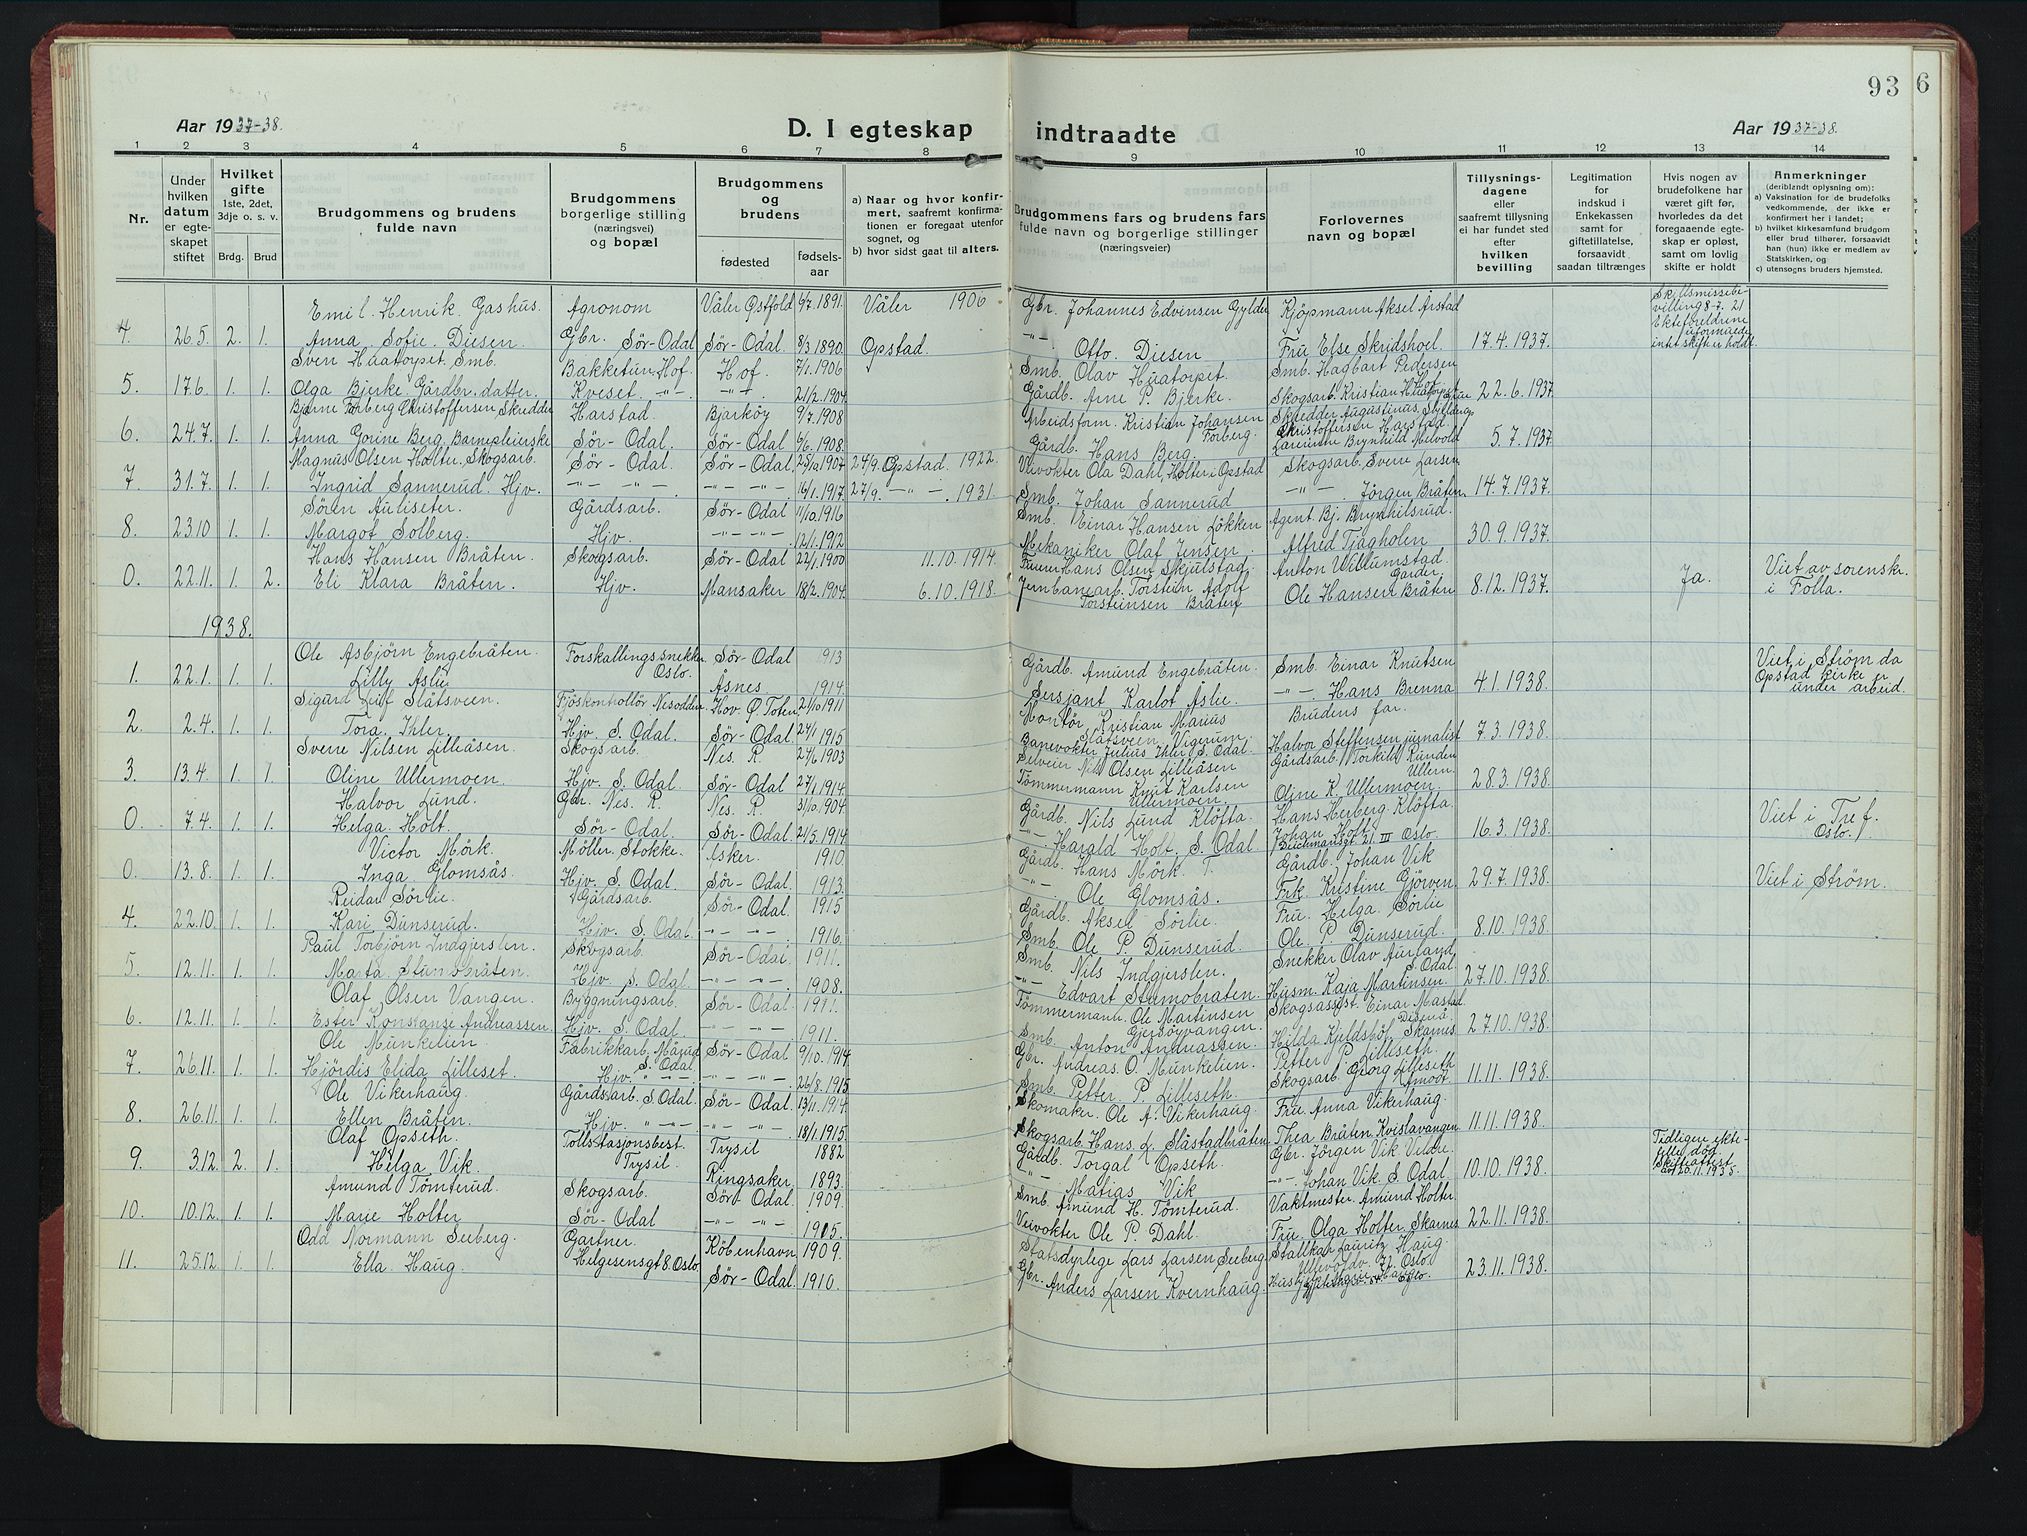 93
6
Aar 1937-38.
D. I egteskap indtraadte
Aar 1937-38.
1 2 3 4 5 6 7 8 9 10 11 12 13 14
Nr.
Under hvilken datum er egteskapet stiftet
Hvilket gifte 1ste, 2det, 3dje o. s. v.
Brdg. Brud
Brudgommens og brudens fulde navn
Brudgommens borgerlige stilling (næringsvei) og bopæl
Brudgommens og brudens
fødested
fødsels-aar
a) Naar og hvor konfirmert, saafremt konfirmationen er foregaat utenfor sognet, og
b) hvor sidst gaat til alters.
Brudgommens fars og brudens fars fulde navn og borgerlige stillinger (næringsveier)
Forlovernes navn og bopæl
Tillysningsdagene eller saafremt tillysning ei har fundet sted efter hvilken bevilling
Legitimation for indskud i Enkekassen samt for giftetillatelse, forsaavidt saadan tiltrænges
Hvis nogen av brudefolkene har været gift før, hvorledes da det foregaaende egteskap er opløst, samt om lovlig skifte er holdt
Anmerkninger (deriblandt oplysning om):
a) Vaksination for de brudefolks vedkommende, der ikke er konfirmert her i landet;
b) hvilket kirkesamfund brudgom eller brud tilhører, forsaavidt han (hun) ikke er medlem av Statskirken, og
c) utensogns bruders hjemsted.
Emil Henrik Gashus. Agronom Våler Østfold 6/7 1891. Våler 1906 Gbr. Johannes Edvinsen Gylder Kjøpmann Aksel Årstad
4 26.5. 2. 1. Anna Sofie Diesen. Gbr. Sör-Odal Sör-Odal 8/3 1890. Opstad. -"- Otto Diesen Fru Else Skridshol. 17.4.1937.
Sven Huatorpet. Smb. Bakketun Hof. Hof. 7/1. 1906 Smb. Olav Huatorpet. Smb. Hagbart Pedersen
5. 17.6. 1. 1. Olga Bjerke Gårdbr. datter. Kveset. -"- -"- 21/2. 1904 Gårdb. Arne P. Bjerke. Skogsarb. Kristian Huatorpet 22.6.1937
Bjarne Forberg Christoffersen Skredder Harstad. Bjarköy 9/7. 1908 Arbeidsform. Kristian Johansen Forberg. Skredder Augustinus
6. 24.7. 1. 1. Anna Gorine Berg. Barnepleierske Sör-Odal. Sör-Odal. 9/6. 1908. Gårdb. Hans Berg. Christoffersen Harstad Brynhild Melvold 5.7.1937
Magnus Olsen Holter. Skogsarb. Sör-Odal. Sör-Odal 25/10 1907 24/9. Opstad. 1922. Veivokter Ola Dahl, Holter i Opstad Skogsarb. Sverre Larsen
7 31.7. 1. 1. Ingrid Sannerud. Hjv. -"- -"- -"- -"- 16/1. 1917. 27/9. -"- 1931. Smb. Johan Sannerud -"- Jörgen Bråten. 14.7.1937.
Sören Auliseter. Gårdsarb. Sör-Odal 11/10. 1916 Smb. Einar Hansen Lökken Agent Bj. Brynhilsrud.
8. 23.10 1. 1. Margot Solberg. Hjv. -"- -"- 12/1. 1912 Mekaniker Olaf Jensen Alfred Tjagholen 30.9.1937.
Hans Hansen Bråten. Skogsarb. Sör-Odal 22/1. 1900 11.10.1914. Hans Olsen Skjulstad. Anton Willumstad. Garder.
0. 22.11. 1. 2. Eli Klara Bråten. Hjv. Mansaker 18/2. 1904. 6.10.1918. Jernbanearb. Torstein Adolf Torsteinsen Bråten Ole Hansen Bråten 8.12.1937. Ja. Viet av sorenskr. i Folla.
1938.
Ole Asbjörn Engebråten. Forskallingssnekker Oslo. Sör-Odal 1913 Gårdb. Amund Engebråten. Smb. Einar Knutsen
1. 22.1. 1. 1. Lilly Aslie Åsnes. 1914. Sersjant Karlot Åslie. -"- Hans Brenna 4.1.1938. Viet i Ström da Opstad kirke er under arbeid.
Sigurd Leif Slåtsveen. Fjöskontrollör Nesodden Hov. Ø. Toten 21/10 1911 Montör Kristian Marius Slåtsveen Vigerum. Brudens far.
2. 2.4. 1. 1. Tora Ihler. Hjv. S. Odal. Sör-Odal 24/1 1915 Banevokter Julius Ihler S. Odal. Halvor Steffensen jurnalist 7.3.1938.
Sverre Nilsen Lilleåsen. Skogsarb. Nes. R. 24/6 1903 Selveier Nils Olsen Lilleåsen Gårdsarb. Torkild Runden Ullern.
3. 13.4. 1. 1. Oline Ullermoen. Hjv. S. Odal. Sör-Odal 27/1. 1914. Tömmermann Knut Karlsen Ullermoen. Oline K. Ullermoen. 28.3.1938.
Halvor Lund. Gbr. Nes. R. Nes. R. 31/10. 1904. Gårdb. Nils Lund Klöfta. Hans Herberg Klöfta.
0. 7.4. 1. 1. Helga Holt. Sör-Odal. Sör-Odal. 21/5. 1914 -"- Harald Holt, S. Odal Johan Holt, 21 III Oslo. 16.3.1938. Viet i Tref. Oslo.
Victor Mörk. Möller. Stokke. Asker. 1910. Gårdb. Hans Mörk. T. Gårdb. Johan Vik
0. 13.8. 1. 1. Inga Glomsås. Hjv. S. Odal. Sör-Odal. 1913. -"- Ole Glomsås. Frk. Kristine Gjörven. 29.7.1938. Viet i Ström.
Reidar Sörlie. Gårdsarb. Sör-Odal. 1915 Gårdb. Aksel Sörlie. Fru. Helga Sörlie
4. 22.10. 1. 1. Kari Dunserud. Hjv. S. Odal -"- -"- 1916. Smb. Ole P. Dunserud. Ole P. Dunserud. 8.10.1938.
Paul Torbjörn Indgjerslen. Skogsarb. Sör-Odal 1911. Smb. Nils Indgjerslen. Snekker Olav Aurland S. Odal.
5. 12.11. 1. 1. Marta Stumobråten. Hjv. S. Odal. -"- -"- 1908. -"- Edvart Stumobråten. Husm. Kaja Martinsen. 27.10.1938.
Olaf Olsen Vangen. Byggningsarb. Sör-Odal 1911. Tömmermann Ole Martinsen Gjersöyvangen. Skogsassist. Einar Mastad. Disenå.
6. 12.11. 1. 1. Ester Konstanse Andreassen. Hjv. S. Odal. -"- -"- 1911. Smb. Anton Andreassen. Hilda Kjeldsböl Skarnes 27.10.1938.
Ole Munkelien. Fabrikkarb. S. Odal Sör-Odal 9/10. 1914 Gbr. Andreas O. Munkelien. Petter P. Lilleseth.
7. 26.11. 1. 1. Hjördis Elida Lilleset. Hjv. -"- -"- -"- -"- 26/8. 1915 Smb. Petter P. Lilleseth. Skogsarb. Georg Lilleseth Åmodt. 11.11.1938.
Ole Vikerhaug. Gårdsarb. S. Odal. Sör-Odal 13/11. 1914. Skomaker. Ole A. Vikerhaug. Fru. Anna Vikerhaug.
8. 26.11. 1. 1. Ellen Bråten. Hjv. -"- -"- -"- -"- 18/1. 1915. Skogsarb. Hans L. Slåstadbråten. Thea Bråten Kvislavangen. 11.11.1938.
Olaf Opseth. Tollstasjonsbest. Trysil. Trysil 1882 Gårdb. Torgal Opseth. Gbr. Jörgen Vik Vildre.
9. 3.12. 2. 1. Helga Vik. Ringsaker 1893. -"- Matias Vik -"- Johan Vik S. Odal. 10.10.1938. Tidligere ektefelle död Skifteattest av 20.11.1935.
Amund Tömterud. Skogsarb. Sör-Odal 1909. Smb. Amund H. Tömterud. Vaktmester. Amund Holter
10. 10.12. 1. 1. Marie Holter Sör-Odal -"- -"- 1905. Veivokter Ole P. Dahl. Fru. Olga Holter. Skarnes 22.11.1938.
Odd Normann Seeberg. Gartner. Köbenhavn 1909. Statsdyrlege Lars Larsen Seeberg. Stallkar Lauritz Haug.
11. 25.12. 1. 1. Ella Haug. Helgesensgt 8. Oslo. Sör-Odal. 1910. Gbr. Anders Larsen Kvernhaug. Oslo 23.11.1938.